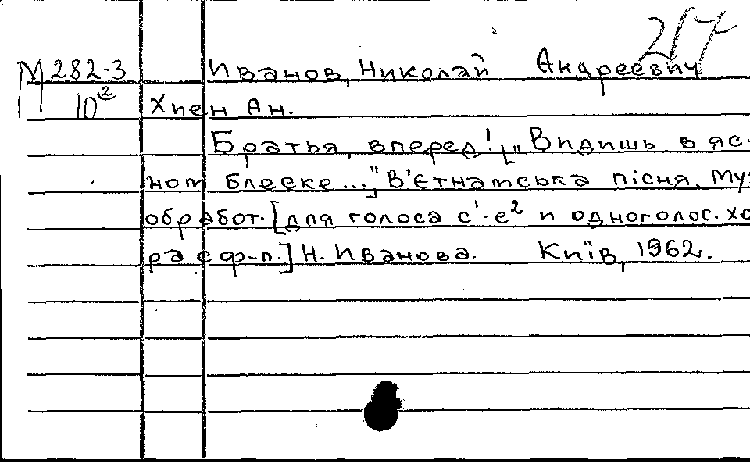 217
М 282-3 Иванов, Николай Андреевич
10² Хиен Ан.
Братья, вперед! [„Видишь в яс-
ном блеске...“] В'єтнамська пісня. Муз
обработ. [для голоса с¹-е² и одноголос. хо
ра с ф-п.] Н. Иванова. Київ, 1962.